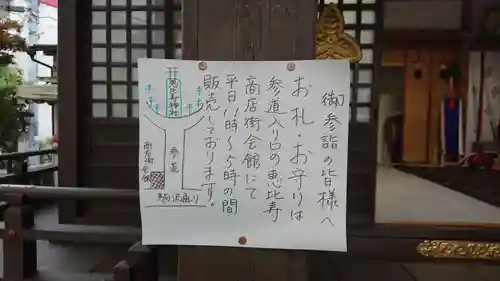 御参詣の皆様へ
お札・お守りは
参道入り口の恵比寿
商店街会館にて
平日11時〜5時の間
販売しております。
恵比寿神社
参道
商店街
会館
駒沢通り